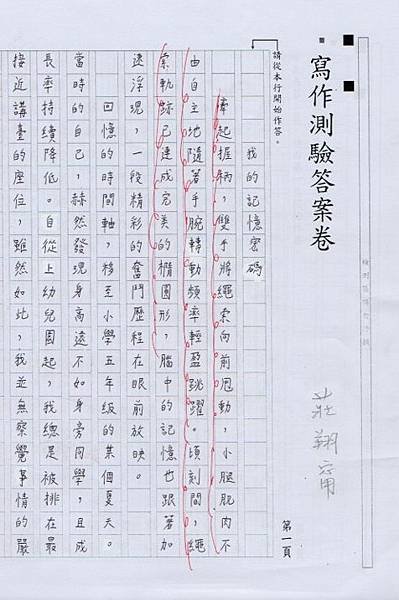 寫作測驗答案卷
第一頁
請從本行開始作答。
我的記憶密碼
牽起握柄，雙手將繩索向前甩動，小腿肌肉不
由自主地隨著手腕轉動頻率輕盈跳躍。頃刻間，繩
索軌跡已達成完美的橢圓形，腦中的記憶也跟著加
速浮現，一段精彩的奮鬥歷程在眼前放映。
回憶的時間軸，移至小學五年級的某個夏天。
當時的自己，赫然發現身高遠不如身旁同學，且成
長率持續降低。自從上幼兒園起，我總是被排在最
接近講臺的座位，雖然如此，我並無察覺事情的嚴